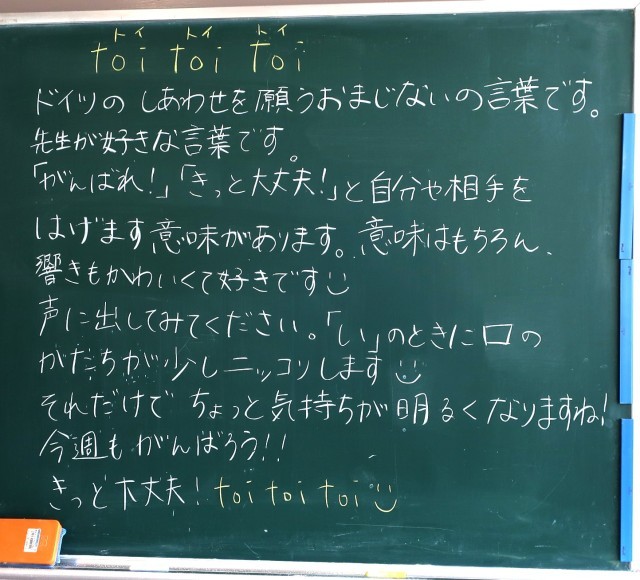 トイ トイ トイ
toi toi toi
ドイツの しあわせを願うおまじないの言葉です。
先生が好きな言葉です。
「がんばれ!」「きっと大丈夫!」と自分や相手を
はげます意味があります。意味はもちろん、
響きもかわいくて好きです
声に出してみてください。「い」のときに口の
かたちが少しニッコリします
それだけで ちょっと気持ちが明るくなりますね!
今週もがんばろう!!
きっと大丈夫! toi toi toi